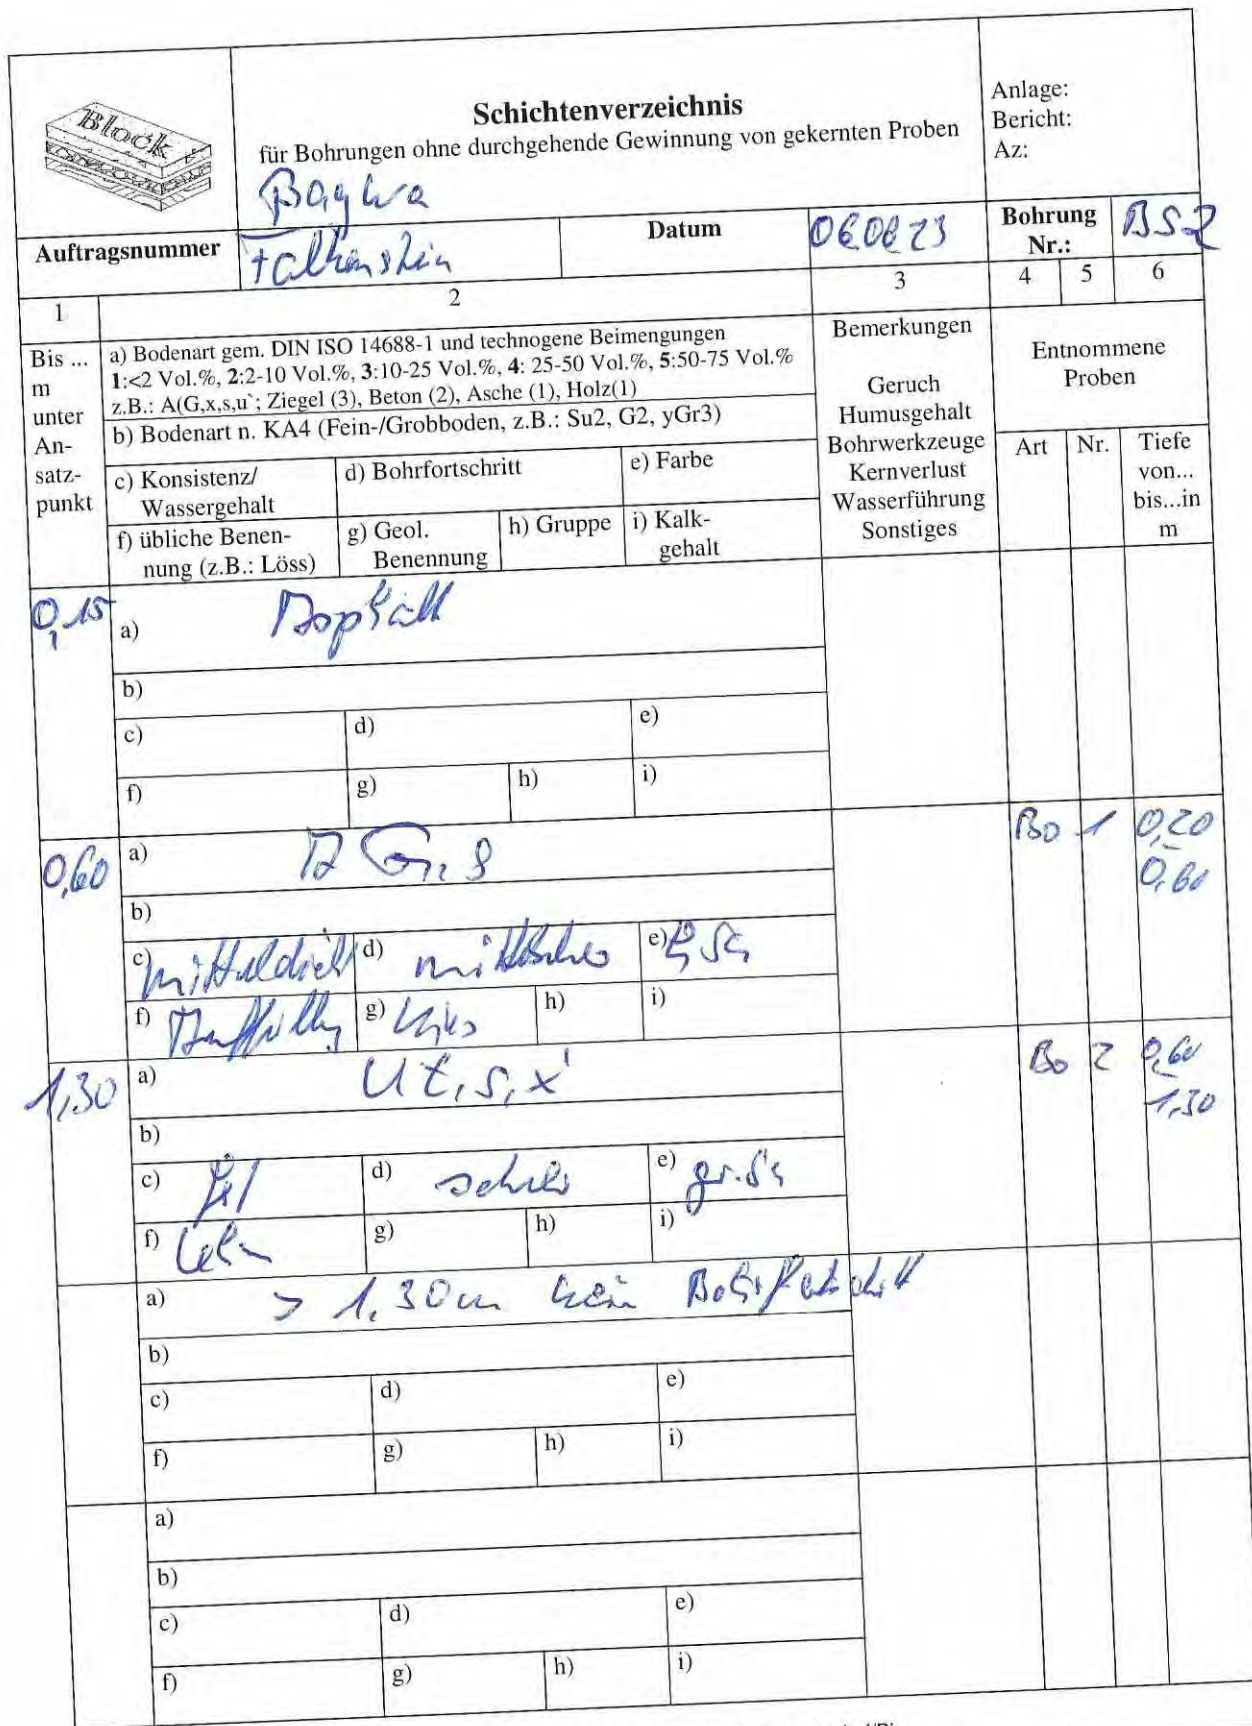 Block
Schichtenverzeichnis
für Bohrungen ohne durchgehende Gewinnung von gekernten Proben
Anlage:
Bericht:
Az:
BayWa
Auftragsnummer
Falkenstein
Datum
060623
Bohrung
Nr.:
BS2
1
2
3
4
5
6
Bis ...
m
unter
An-
satz-
punkt
a) Bodenart gem. DIN ISO 14688-1 und technogene Beimengungen
1:<2 Vol.%, 2:2-10 Vol.%, 3:10-25 Vol.%, 4: 25-50 Vol.%, 5:50-75 Vol.%
z.B.: A(G,x,s,u`; Ziegel (3), Beton (2), Asche (1), Holz(1)
b) Bodenart n. KA4 (Fein-/Grobboden, z.B.: Su2, G2, yGr3)
c) Konsistenz/
Wassergehalt
d) Bohrfortschritt
e) Farbe
f) übliche Benen-
nung (z.B.: Löss)
g) Geol.
Benennung
h) Gruppe
i) Kalk-
gehalt
Bemerkungen
Geruch
Humusgehalt
Bohrwerkzeuge
Kernverlust
Wasserführung
Sonstiges
Entnommene
Proben
Art
Nr.
Tiefe
von...
bis...in
m
0,15
a) Asphalt
b)
c)
d)
e)
f)
g)
h)
i)
0,60
a) A
b)
c) mitteldicht
d) mittelschwer
e)
f) Auffüllung
g) Kies
h)
i)
Bo 1 0,20
-
0,60
1,30
a) U t, s, x'
b)
c)
d) schwer
e)
f) Lehm
g)
h)
i)
Bo 2 0,60
-
1,30
a) > 1,30m kein Bohrfortschritt
b)
c)
d)
e)
f)
g)
h)
i)
a)
b)
c)
d)
e)
f)
g)
h)
i)